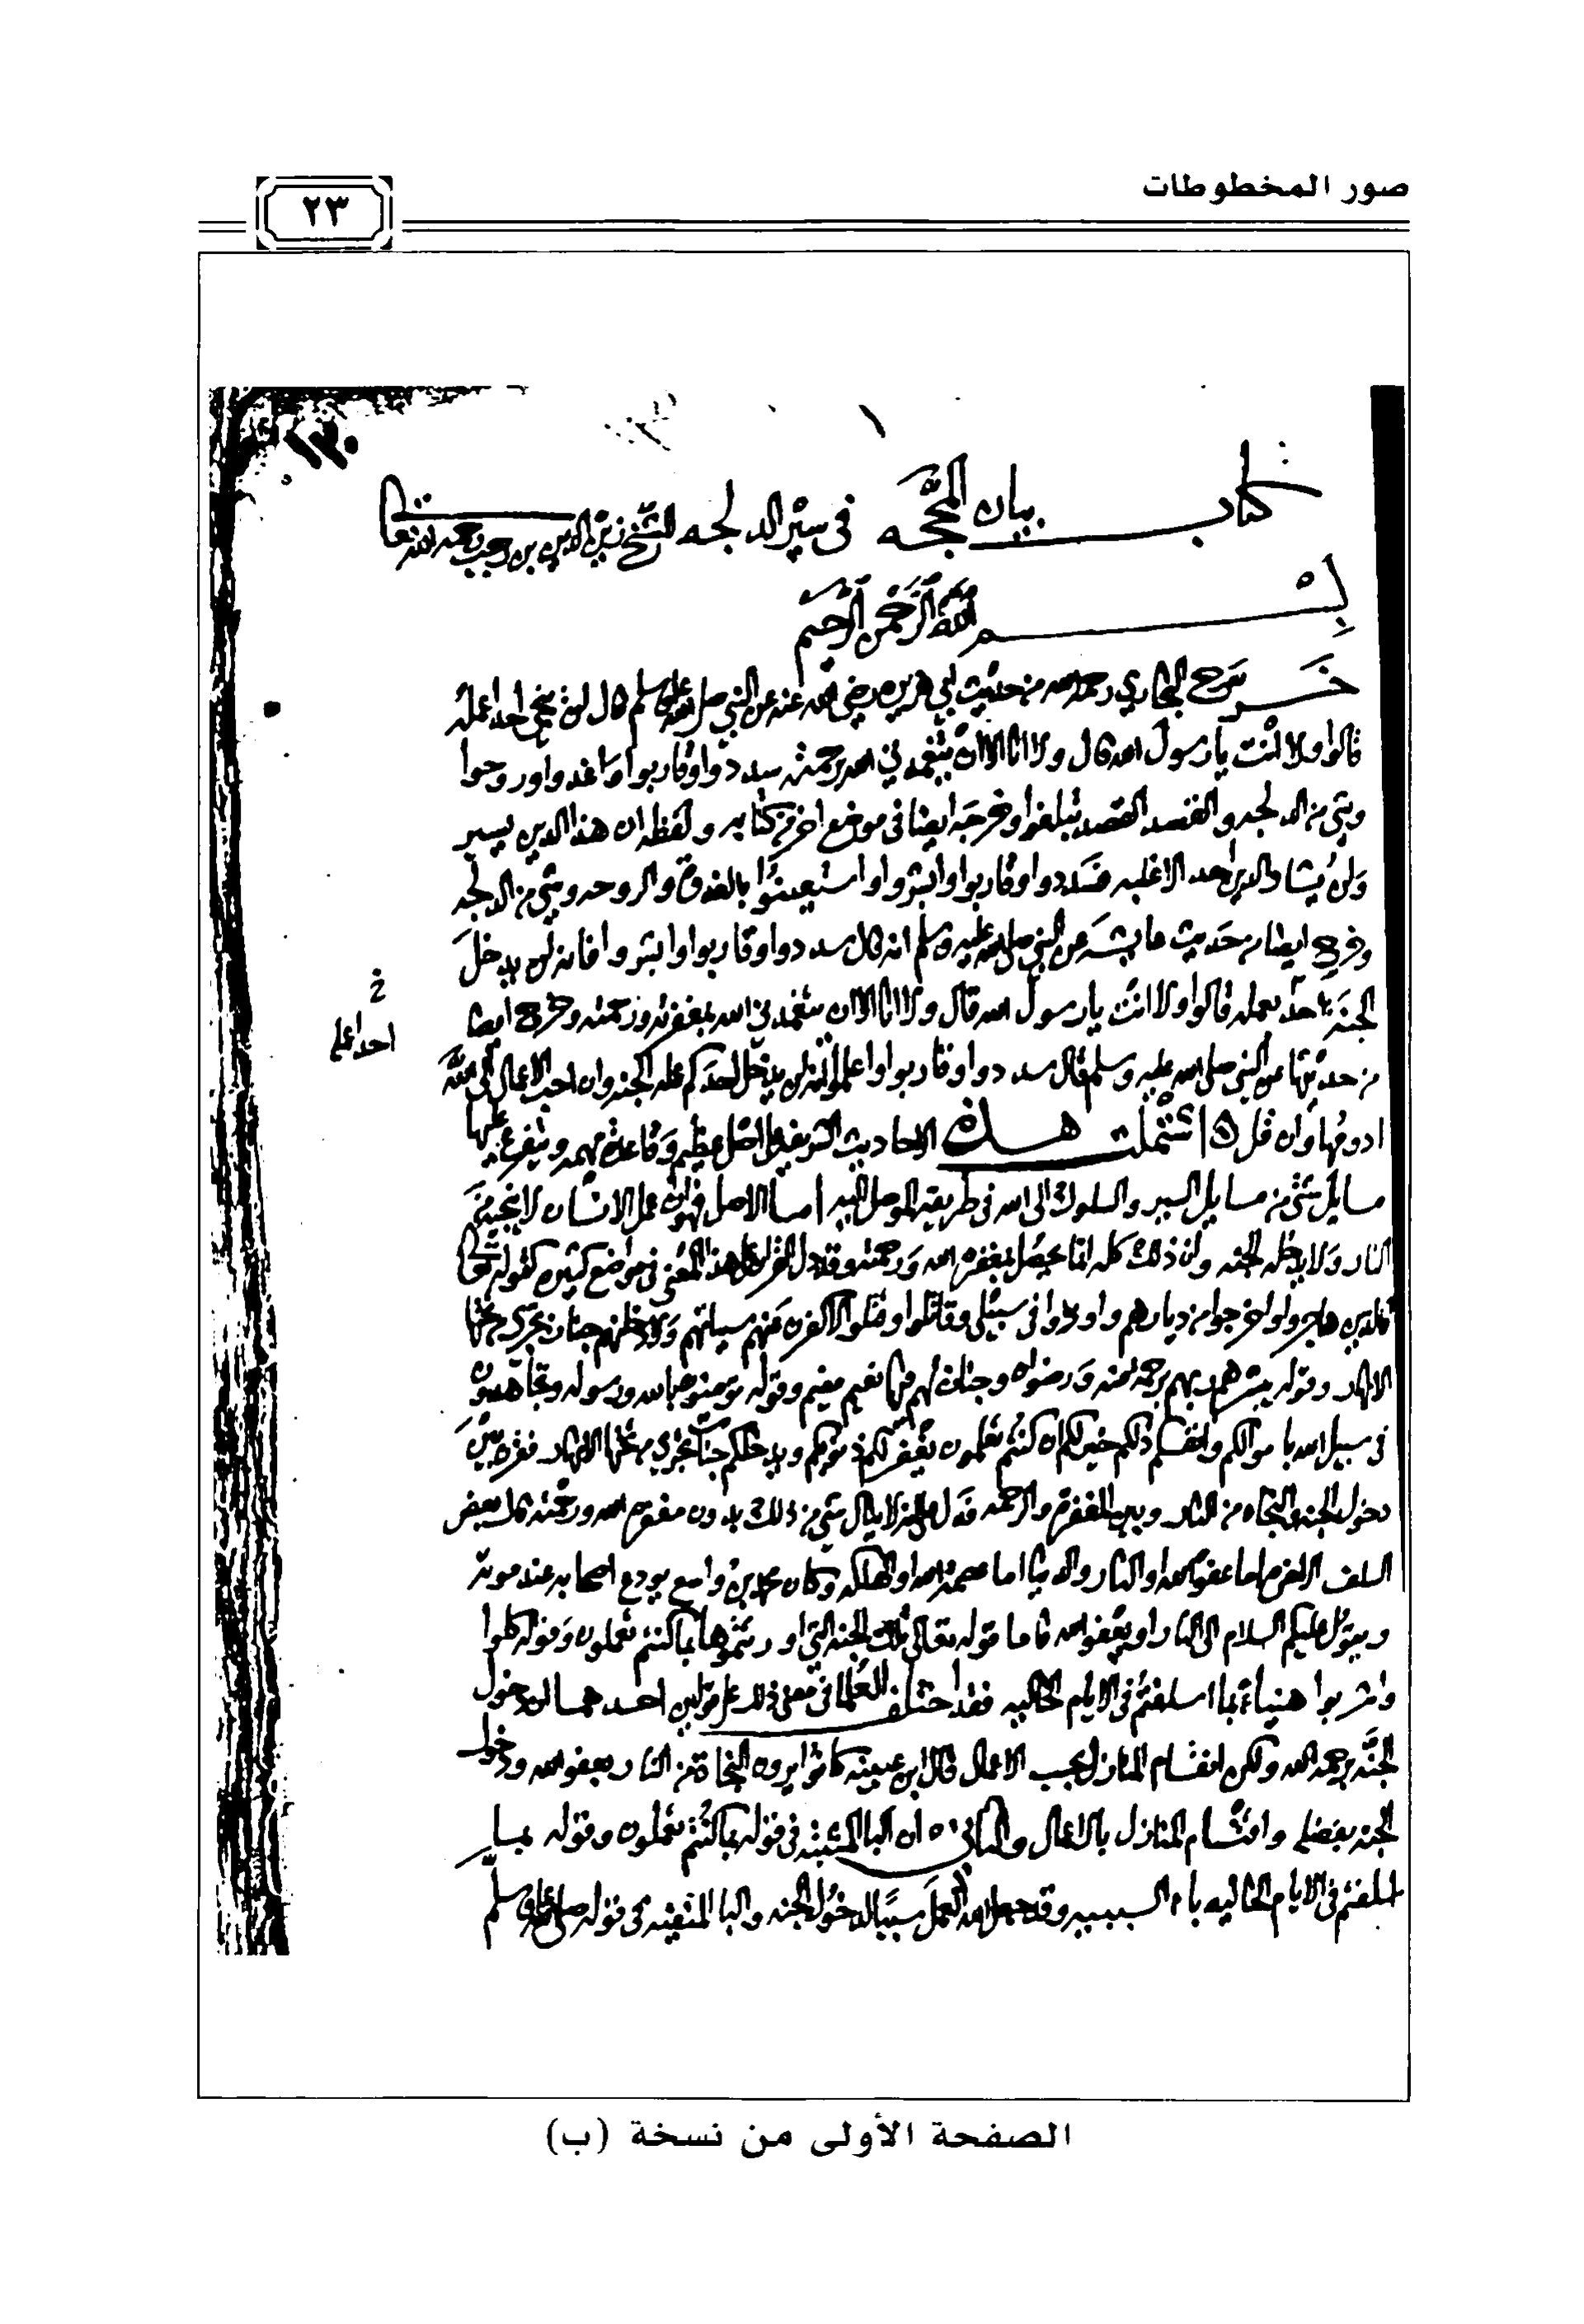 صور المخطوطات
٢٣
١٣٠
كتاب بيان المحجه في سير الدلجه للشيخ زين الدين بن رجب رحمه الله تعالى
بسم الله الرحمن الرحيم
خرج البخاري رحمه الله من حديث ابي هريره رضي الله عنه عن النبي صلى الله عليه وسلم قال لن ينجي احدا عمله
قالوا ولا انت يا رسول الله قال ولا انا الا ان يتغمدني الله برحمته سددوا وقاربوا واغدوا وروحوا
وشي من الدلجه والقصد القصد تبلغوا وخرجه ايضا في موضع اخر من كتابه ولفظه ان هذا الدين يسير
ولن يشاد الدين احد الا غلبه فسددوا وقاربوا وابشروا واستعينوا بالغدوة والروحه وشي من الدلجه
وخرج ايضا من حديث عايشه عن النبي صلى الله عليه وسلم انه قال سددوا وقاربوا وابشروا فانه لن يدخل
الجنه احد بعمله قالوا ولا انت يا رسول الله قال ولا انا الا ان يتغمدني الله بمغفرته ورحمته وخرج ايضا
خ
احدا عمله
من حديثها عن النبي صلى الله عليه وسلم قال سددوا وقاربوا واعلموا انه لن يدخل احدكم عمله الجنه وان احب الاعمال الى الله
ادومها وان قل اشتملت هذه الاحاديث الشريفه على اصل عظيم وقاعدة مهمه ويتفرع عليها
مسايل شتى من مسايل السير والسلوك الى الله في طريقه الموصل اليه اما الاصل فهو ان عمل الانسان لا ينجيه من
النار ولا يدخله الجنه وان ذلك كله انما يحصل بمغفرة الله ورحمته وقد دل القران على هذا المعنى في مواضع كثيره كقوله تعالى
فالذين هاجروا واخرجوا من ديارهم واوذوا في سبيلي وقاتلوا وقتلوا لاكفرن عنهم سياتهم ولادخلنهم جنات تجري من تحتها
الانهار وقوله يبشرهم ربهم برحمة منه ورضوان وجنات لهم فيها نعيم مقيم وقوله تومنون بالله ورسوله وتجاهدون
في سبيل الله باموالكم وانفسكم ذلكم خير لكم ان كنتم تعلمون يغفر لكم ذنوبكم ويدخلكم جنات تجري من تحتها الانهار فقرن بين
دخول الجنه والنجاه من النار وبين المغفرة والرحمه فدل على انه لا ينال شي من ذلك بدون مغفرة الله ورحمته قال بعض
السلف الاخرة اما عفو الله او النار والدنيا اما عصمة الله او الهلكه وكان محمد بن واسع يودع اصحابه عند موته
ويقول عليكم السلام الى النار او يعفو الله فاما قوله تعالى تلك الجنه التي اورثتموها بما كنتم تعملون وقوله كلوا
واشربوا هنيا بما اسلفتم في الايام الخاليه فقد اختلف العلما في معنى ذلك على قولين احدهما ان دخول
الجنه برحمة الله ولكن انقسام المنازل بحسب الاعمال قال ابن عيينه كانوا يرون النجاة من النار بعفو الله ودخول
الجنه بفضله واقتسام المنازل بالاعمال والثاني ان البا المثبته في قوله بما كنتم تعملون وقوله بما
اسلفتم في الايام الخاليه باء السببيه وقد جعل الله العمل سببا لدخول الجنه والبا المنفيه في قوله صلى الله عليه وسلم
الصفحة الأولى من نسخة (ب)